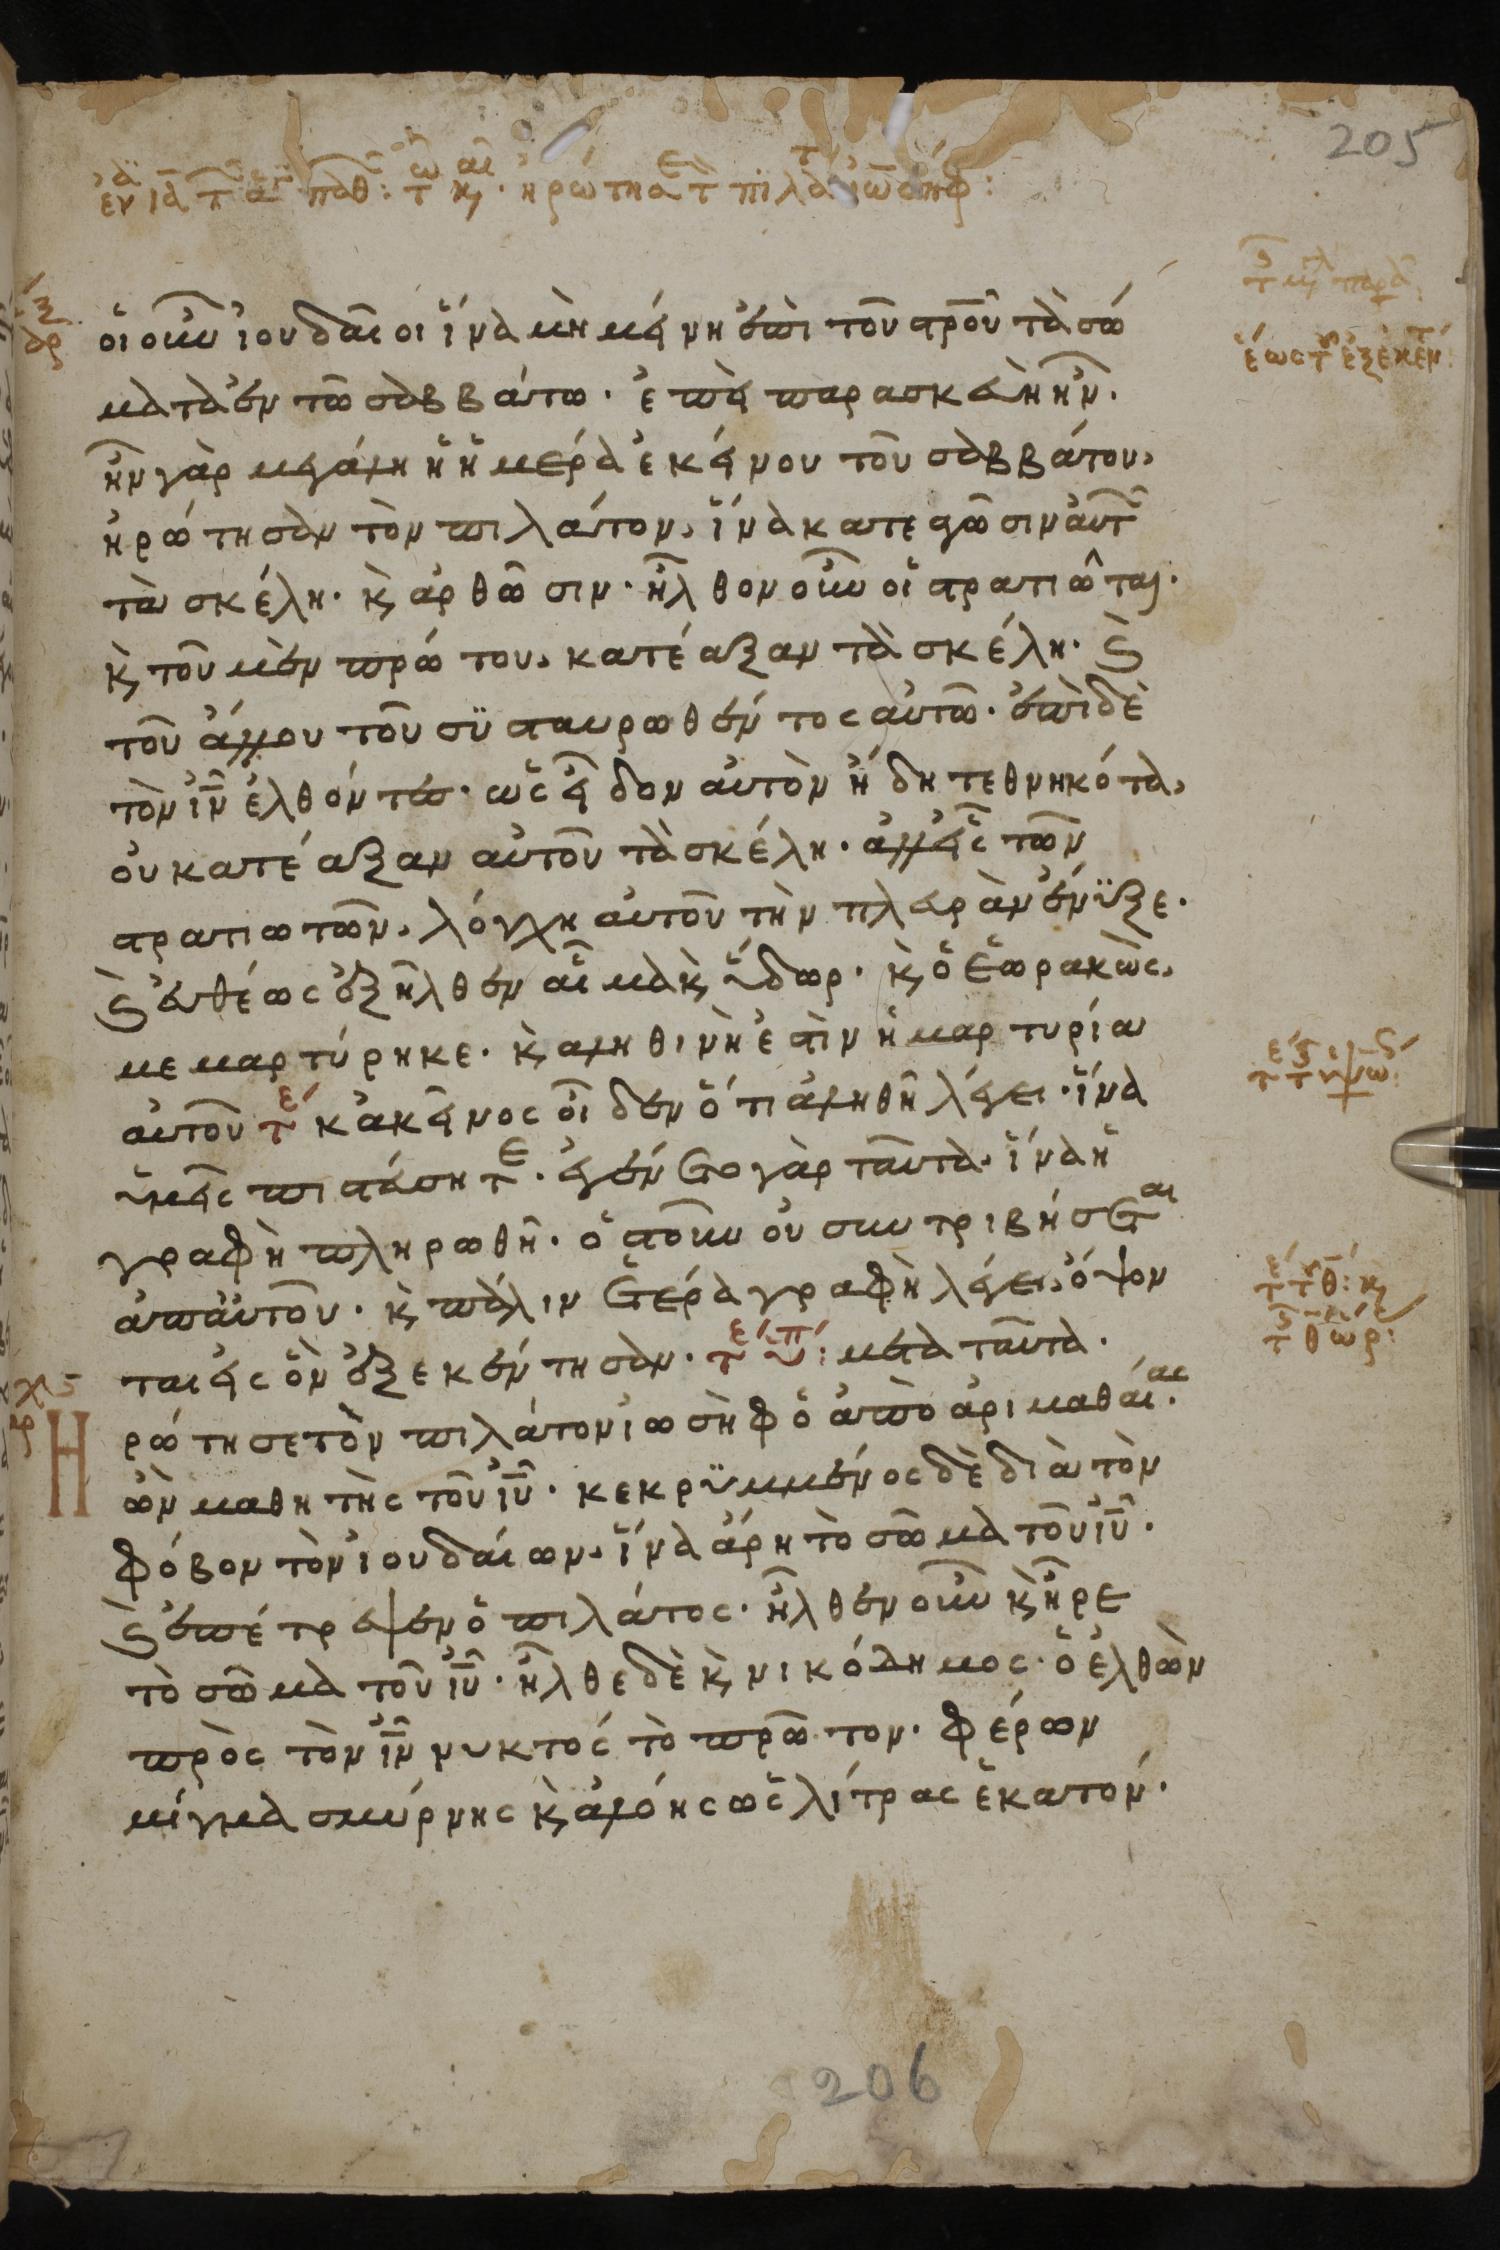 205
οἱ οὖν ἰουδαῖοι ἵνα μὴ μείνη ἐπὶ τοῦ στροῦ τὰ σώ
ματα ἐν τῶ σαββάτω· ἐπεὶ παρασκευὴ ἦν·
ἦν γὰρ μεγάλη ἡ ἡμέρα ἐκείνου τοῦ σαββάτου,
ἠρώτησαν τὸν πιλάτον, ἵνα κατεαγῶσιν αὐτῶν
τὰ σκέλη· κ̀ ἀρθῶσιν· ἦλθον οὖν οἱ στρατιῶται·
κ̀ τοῦ μὲν πρώτου, κατέαξαν τὰ σκέλη· κ̀
τοῦ ἄλλου τοῦ συσταυρωθέντος αὐτῶ· ἐπὶ δὲ
τὸν ἰν̅ ἐλθόντες· ὡς εἶδον αὐτὸν ἤδη τεθνηκότα,
οὐ κατέαξαν αὐτοῦ τὰ σκέλη· ἀλλ εἷς τῶν
στρατιωτῶν, λόγχη αὐτοῦ τὴν πλευρὰν ἔνυξε·
κ̀ εὐθέως ἐξῆλθεν αἷμα κ̀ ὕδωρ· κ̀ ὁ ἑωρακὼς,
μεμαρτύρηκε· κ̀ αληθινὴ ἐστὶν ἡ μαρτυρία
αὐτοῦ τε κἀκεῖνος οἶδεν ὅτι ἀληθῆ λέγει· ἵνα
ὑμεῖς πιστεύσητε· ἐγένετο γὰρ ταῦτα· ἵνα ἡ
γραφὴ πληρωθῆ· ὀστοῦν οὐ συντριβήσεται
ἀπ αὐτοῦ· κ̀ πάλιν ἑτέρα γραφὴ λέγει, ὄψον
ται εἰς ὃν ἐξεκέντησαν· μετὰ ταῦτα·
Η
ρώτησε τὸν πιλάτον ἰωσὴφ ὁ ἀπὸ ἀριμαθαίας·
ὢν μαθητὴς τοῦ ἰυ̅· κεκρυμμένος δὲ διὰ τὸν
φόβον τὸν ἰουδαίων, ἵνα ἄρη τὸ σῶμα τοῦ ἰυ̅·
κ̀ ἐπέτρεψεν ὁ πιλάτος· ἦλθεν οὖν κ̀ ἦρε
τὸ σῶμα τοῦ ἰυ̅· ἦλθε δὲ κ̀ νικόδημος· ὁ ἐλθὼν
πρὸς τὸν ἰν̅ νυκτός τὸ πρῶτον· φέρων
μίγμα σμύρνης κ̀ ἀλόης ὡς λίτρας ἑκατόν·
206